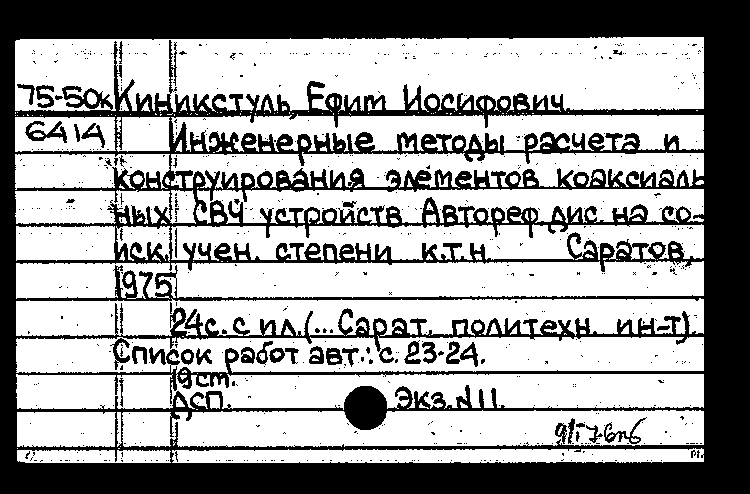 75-50к Киникстуль, Ефим Иосифович.
6414 Инженерные методы расчета и
конструирования элементов коаксиаль
ных СВЧ устройств. Автореф. дис. на со-
иск. учен. степени к.т.н. Саратов,
1975
24с. с ил. (... Сарат. политехн. ин-т).
Список работ авт.: с. 23-24.
19 ст.
ДСП. Экз. №11.